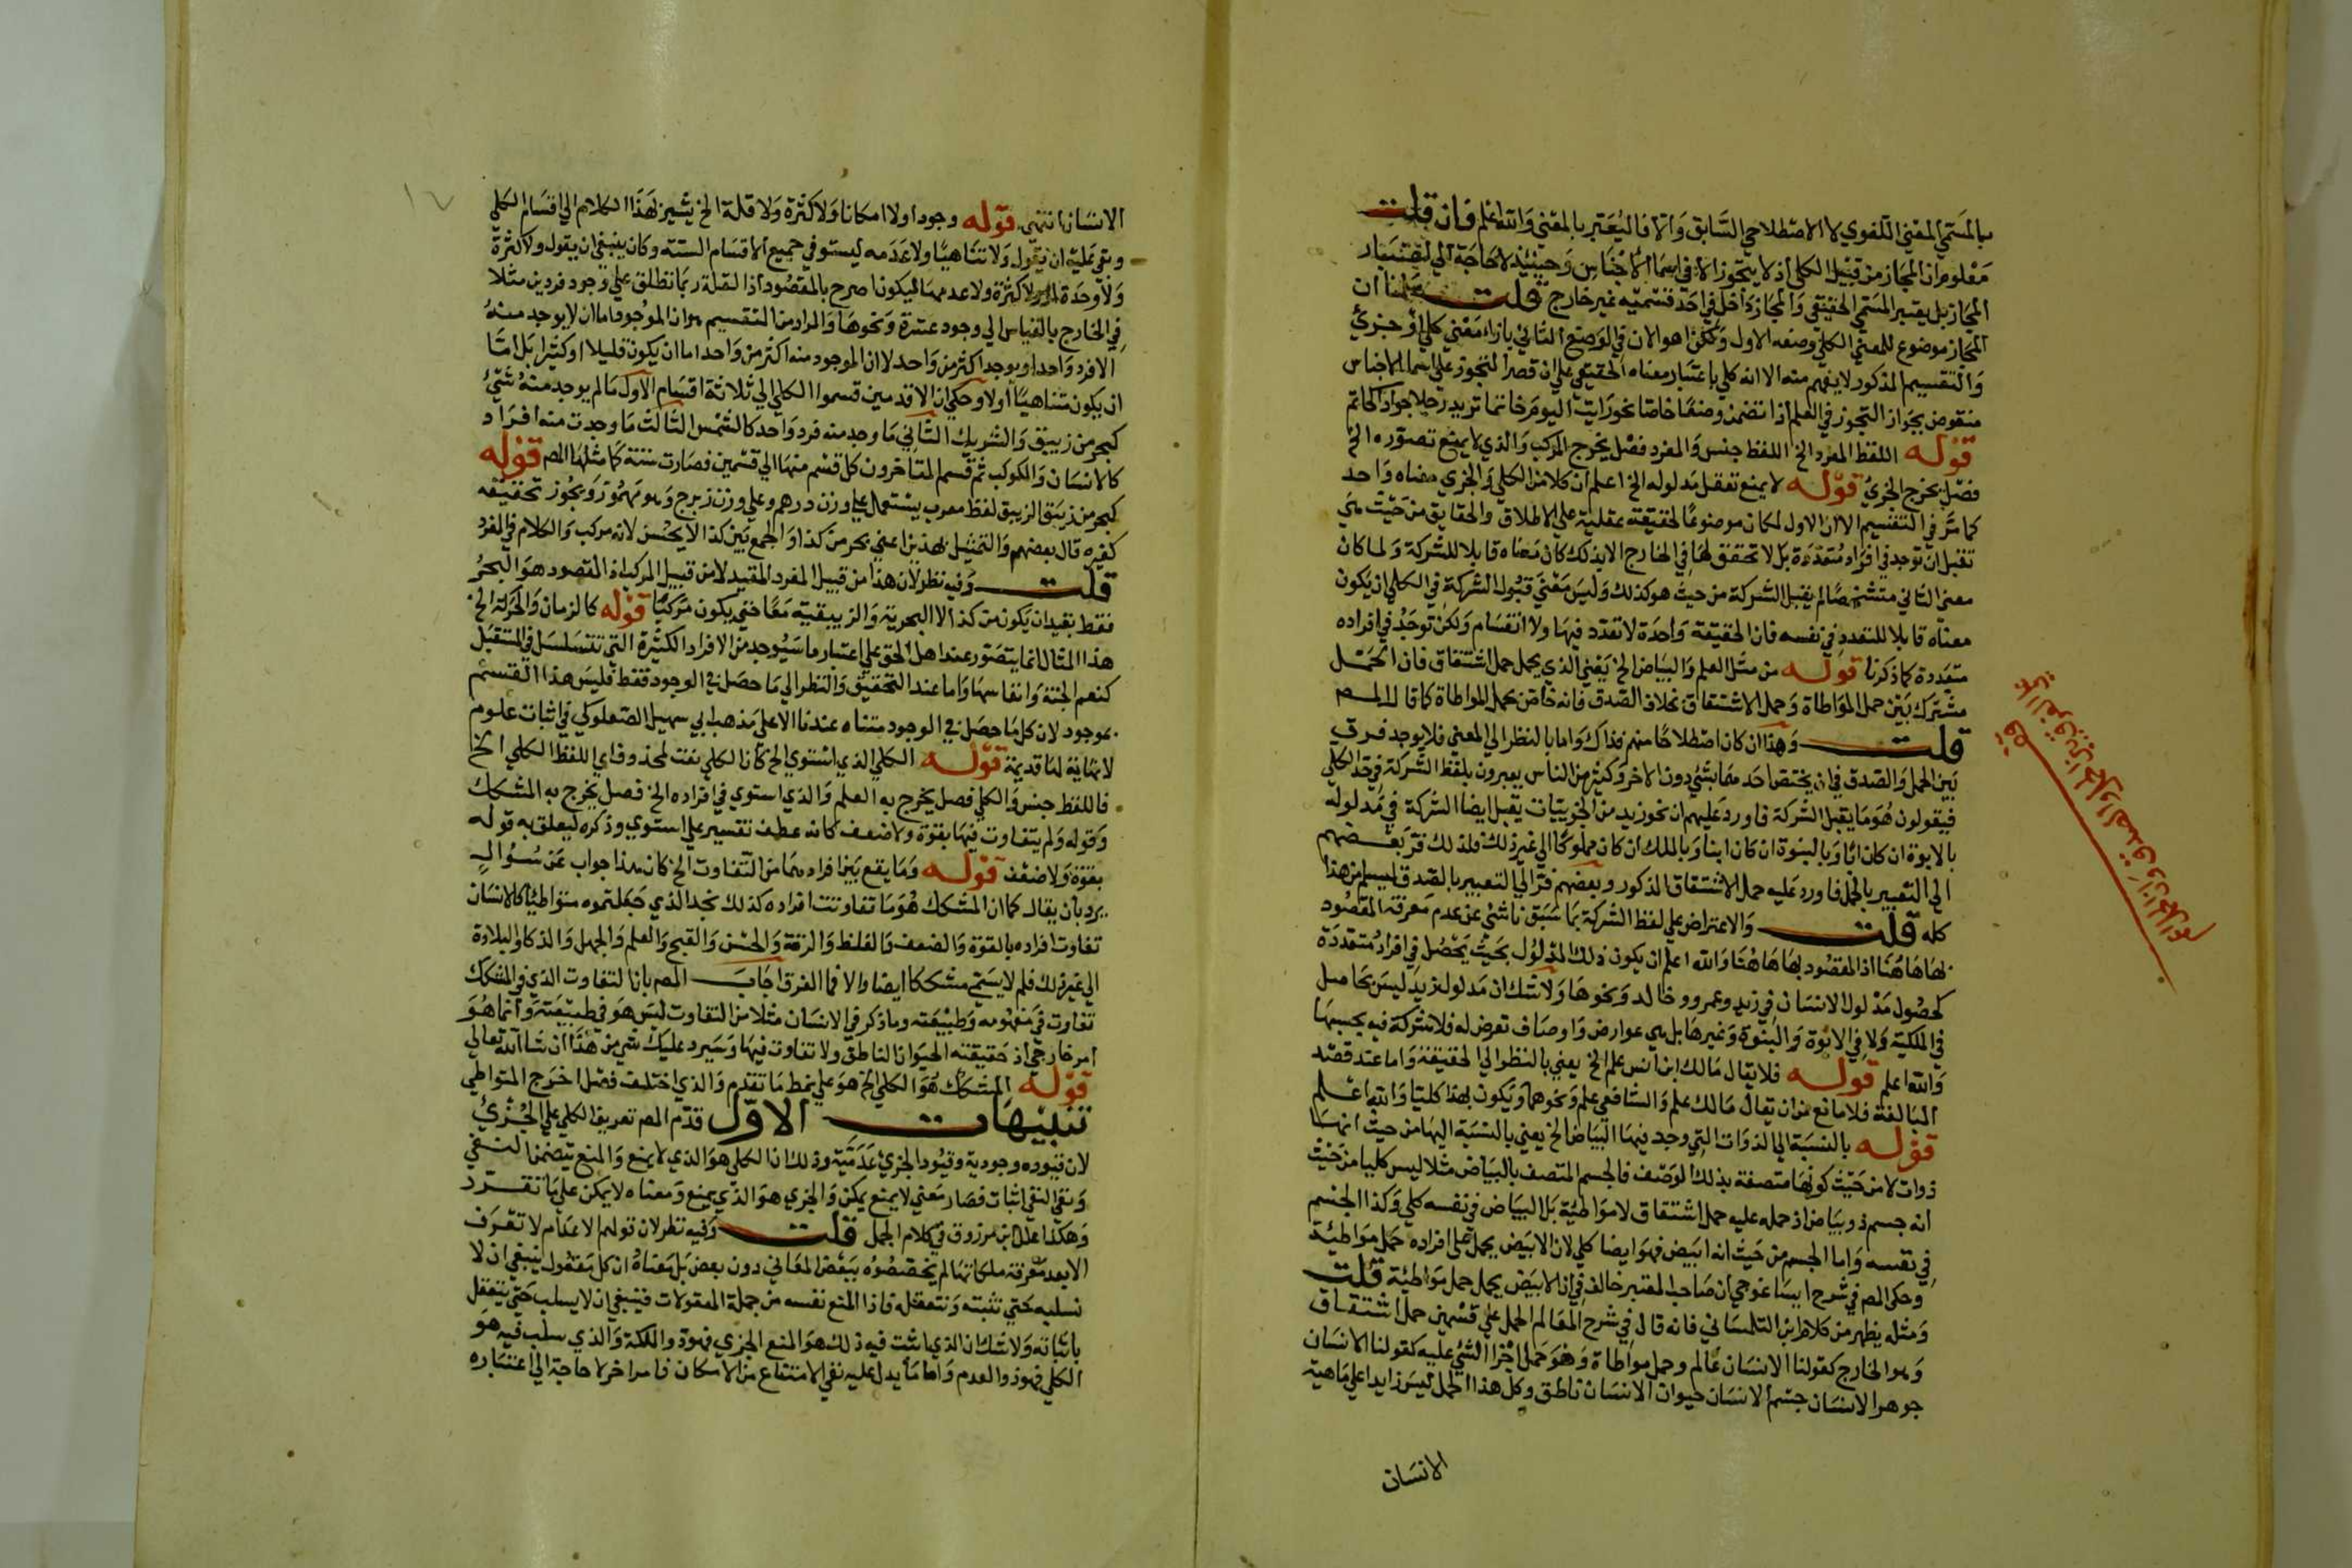 بالمسمي المعني اللغوي لا الاصطلاحي السابق والا فاليعتبر بالمعني والله اعلم فان قلت
معلوم ان المجاز من قبيل الكلي اذ لا يتجوز الا في اسما الاجناس وحينئذ لا حاجة الي اعتبار
المجاز بل يعتبر المسمي الحقيقي والمجاز داخل في احد قسميه غير خارج قلت سلمنا ان
المجاز موضوع للمعني الكلي وضعه الاول ولكن هو الان في الوضع الثاني بازاء معني كلي او جزئي
والتقسيم المذكور لا يفهم منه الا انه كلي باعتبار معناه الحقيقي علي ان قصر التجوز علي اسما الاجناس
منقوض بجواز التجوز في العلم اذا تضمن وصفا خاصا نحو رايت اليوم حاتما تريد رجلا جوادا كحاتم
قوله اللفظ المفرد الخ اللفظ جنس والمفرد فصل يخرج المركب والذي لا يمنع تصوره الخ
فصل يخرج الجزئ قوله لا يمنع تعقل مدلوله الخ اعلم ان كلا من الكلي والجزي معناه واحد
كما مر في التقسيم الا ان الاول لما كان موضوعا لحقيقة عقلية علي الاطلاق والحقايق من حيث هي
تقبل ان توجد في افراد متعددة بل لا تحقق لها في الخارج الا بذلك كان معناه قابلا للشركة ولما كان
معني الثاني متشخصا لم يقبل الشركة من حيث هو كذلك وليس معني قبول الشركة في الكلي ان يكون
معناه قابلا للتعدد في نفسه فان الحقيقة واحدة لا تعدد فيها ولا انقسام ولكن توجد في افراده
متعددة كما ذكرنا قوله من مثل العلم والبياض الخ يعني الذي يحمل حمل اشتقاق فان الحمل
مشترك بين حمل المواطاة وحمل الاشتقاق بخلاف الصدق فانه خاص بحمل المواطاة كما قال المص
قلت وهذا ان كان اصطلاحا منهم فذاك واما بالنظر الي المعني فلا يوجد فرق
بين الحمل والصدق في ان يختص احدهما بشي دون الاخر وكثير من الناس يعبرون بلفظ الشركة في حد الكلي
فيقولون هو ما يقبل الشركة فاورد عليهم ان نحو زيد من الجزييات يقبل ايضا الشركة في مدلوله
بالابوة ان كان ابا وبالبنوة ان كان ابنا وبالملك ان كان مملوكا الي غير ذلك فلذلك فر بعضهم
الي التعبير بالحمل فاورد عليه حمل الاشتقاق المذكور وبعضهم فر الي التعبير بالصدق ليسلم من هذا
كله قلت والاعتراض علي لفظ الشركة بما سبق ناشئ عن عدم معرفة المقصود
بها هاهنا اذ المقصود بها هاهنا والله اعلم ان يكون ذلك المدلول بحيث يحصل في افراد متعددة
كحصول مدلول الانسان في زيد وعمرو وخالد ونحوها ولا شك ان مدلول زيد ليس بحاصل
في الملكية ولا في الابوة والبنوة وغيرها بل هي عوارض واوصاف تعرض له فلا شركة فيه بحسبها
والله اعلم قوله فلا يقال مالك ابن انس علم الخ يعني بالنظر الي الحقيقة واما عند قصد
المبالغة فلا مانع من ان يقال مالك علم والشافعي علم ونحوهما ويكون بهذا كليا والله اعلم
قوله بالنسبة الي الذوات التي وجد فيها البياض الخ يعني بالنسبة اليها من حيث انها
ذوات لا من حيث كونها متصفة بذلك الوصف فالجسم المتصف بالبياض مثلا ليس كليا من حيث
انه جسم ذو بياض اذ حمله عليه حمل اشتقاق لا مواطية بل البياض في نفسه كلي وكذا الجسم
في نفسه واما الجسم من حيث انه ابيض فهو ايضا كلي لان الابيض يحمل علي افراده حمل مواطئة
وحكي المص في شرح ايساغوجي ان صاحب المعتبر خالف في ان الابيض يحمل حمل مواطية قلت
ومثله يظهر من كلام ابن التلمساني فانه قال في شرح المعالم الحمل علي قسمين حمل اشتقاق
وهو الخارج كقولنا الانسان عالم وحمل مواطاة وهو حمل اجزا الشئ عليه كقولنا الانسان
جوهر الانسان جسم الانسان حيوان الانسان ناطق وكل هذا الحمل ليس زايدا علي ماهية
الانسان
الانسان انتهي قوله وجودا ولا امكانا ولا كثرة ولا قلة الخ يشير بهذا الكلام الي اقسام الكلي
وبقي عليه ان يقول ولا تناهيا ولا عدمه ليستوفي جميع الاقسام الستة وكان ينبغي ان يقول ولا كثرة
ولا وحدة ولا عدمهما ليكون اصرح بالمقصود اذ القلة ربما تطلق علي وجود فردين مثلا
في الخارج بالقياس الي وجود عشرة ونحوها والمراد من التقسيم هو ان الموجود اما ان لا يوجد منه
الا فرد واحد او يوجد اكثر من واحد لا ان الموجود منه اكثر من واحد اما ان يكون قليلا او كثيرا بل اما
ان يكون متناهيا او لا وحكي ان الاقدمين قسموا الكلي الي ثلاثة اقسام الاول ما لم يوجد منه شئ
كبحر من زيبق والشريك الثاني ما وجد منه فرد واحد كالشمس الثالث ما وجدت منه افراد
كالانسان والكوكب ثم قسم المتاخرون كل قسم منها الي قسمين فصارت ستة كما مثلها المص قوله
كبحر من زيبق الزيبق لفظ معرب يستعمل علي وزن درهم وعلي وزن زبرج وهو مهموز ويجوز تخفيفه
كغيره قال بعضهم والتمثيل بهذين اعني بحر من كذا والجمع بين كذا لا يحسن لانه مركب والكلام في المفرد
قلت وفيه نظر لان هذا من قبيل المفرد المقيد لا من قبيل المركب اذ المقصود هو البحر
فقط بقيد ان يكون من كذا لا البحرية والزيبقية معا حتي يكون مركبا قوله كالزمان والحركة الخ
هذا المثال انما يتصور عند اهل الحق علي اعتبار ما سيوجد من الافراد الكثيرة التي تتسلسل في المستقبل
كنعم الجنة وانفاسها واما عند التحقيق والنظر الي ما حصل في الوجود فقط فليس هذا القسم
بموجود لان كل ما حصل في الوجود متناه عندنا الا علي مذهب ابي سهيل الصعلوكي في اثبات علوم
لا نهاية لها قديمة قوله الكلي الذي استوي الخ كان الكلي نعت لمحذوف اي اللفظ الكلي الخ
فاللفظ جنس والكلي فصل يخرج به العلم والذي استوي في افراده الخ فصل يخرج به المشكك
وقوله ولم يتفاوت فيها بقوة ولا ضعف كانه عطف تفسير علي استوي وذكره ليعلق به قوله
بقوة ولا ضعف قوله وما يقع بين افرادهما من التفاوت الخ كان هذا جواب عن سؤال
يرد بان يقال كما ان المشكك هو ما تفاوتت افراده كذلك نجد الذي جعلتموه متواطيا كالانسان
تفاوت افراده بالقوة والضعف والغلظ والرقة والحسن والقبح والعلم والجهل والذكا والبلادة
الي غير ذلك فلم لا يسمي مشككا ايضا والا فما الفرق اجاب المص بان التفاوت الذي في المشكك
تفاوت في مفهومه وطبيعته وما ذكر في الانسان مثلا من التفاوت ليس هو في طبيعته وانما هو
امر خارجي اذ حقيقته الحيوان الناطق ولا تفاوت فيها وسيرد عليك شي من هذا ان شا الله تعالي
قوله المشكك هو الكلي الخ هو علي نمط ما تقدم والذي اختلف فصل اخرج المتواطي
تنبيهات الاول قدم المص تعريف الكلي علي الجزئ
لان قيوده وجودية وقيود الجزئ عدمية وذلك ان الكلي هو الذي لا يمنع والمنع يتضمن النفي
ونفي النفي اثبات فصار معني لا يمنع يمكن والجزي هو الذي يمنع ومعناه لا يمكن علي ما تقرر
وهكذا علل ابن مرزوق في كلام الجمل قلت وفيه نظر لان قولهم الاعدام لا تعرف
الا بعد معرفة ملكاتها لم يخصصوه ببعض المعاني دون بعض بل معناه ان كل معقول ينبغي ان لا
نسلبه حتي نثبته ونتعقله فاذا المنع نفسه من جملة المعقولات فينبغي ان لا يسلب حتي يتعقل
باثباته ولا شك ان الذي اثبت فيه ذلك هو المنع الجزي فهو ذو الملكة والذي سلب فيه هو
الكلي فهو ذو العدم واما ما يدل عليه نفي الامتناع من الامكان فامر اخر لا حاجة الي اعتباره